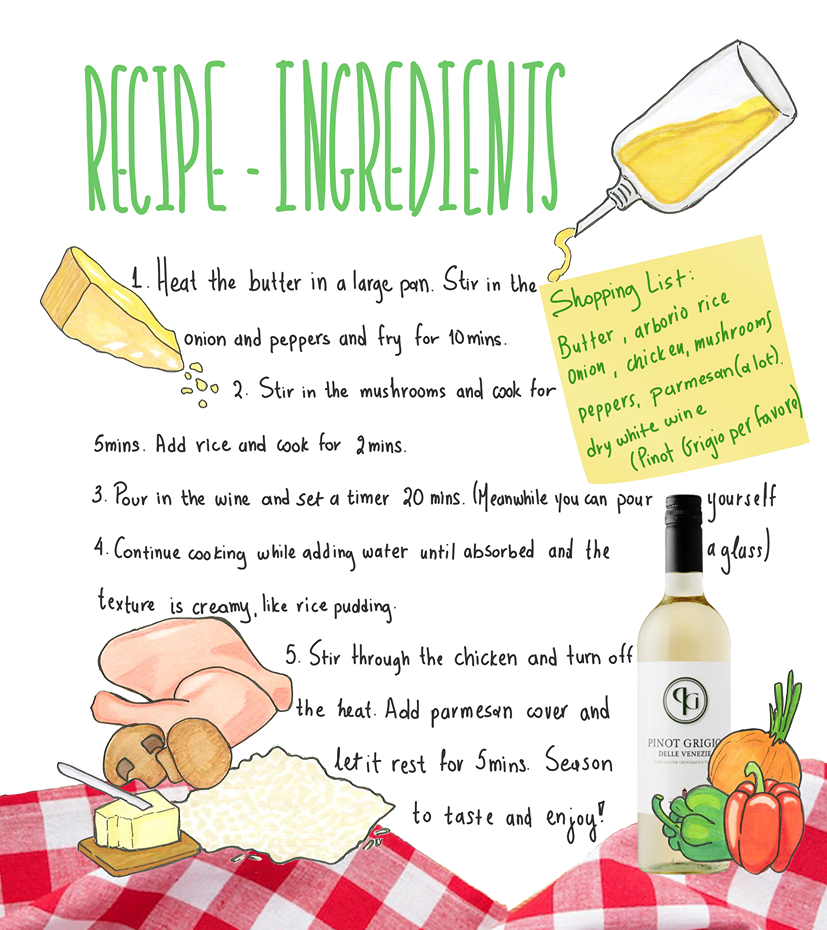 RECIPE - INGREDIENTS
1. Heat the butter in a large pan. Stir in the
onion and peppers and fry for 10mins.
2. Stir in the mushrooms and cook for
5mins. Add rice and cook for 2mins.
3. Pour in the wine and set a timer 20 mins. (Meanwhile you can pour yourself
a glass)
4. Continue cooking while adding water until absorbed and the
texture is creamy, like rice pudding.
5. Stir through the chicken and turn off
the heat. Add parmesan cover and
let it rest for 5mins. Season
to taste and enjoy!
Shopping List:
Butter, arborio rice
onion, chicken, mushrooms
peppers, parmesan (a lot).
dry white wine
(Pinot Grigio per favore)
PG
PINOT GRIGIO
DELLE VENEZIE